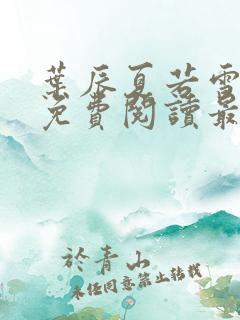 葉辰夏若雪
免費閱讀最
於青山
未經同意禁止轉載